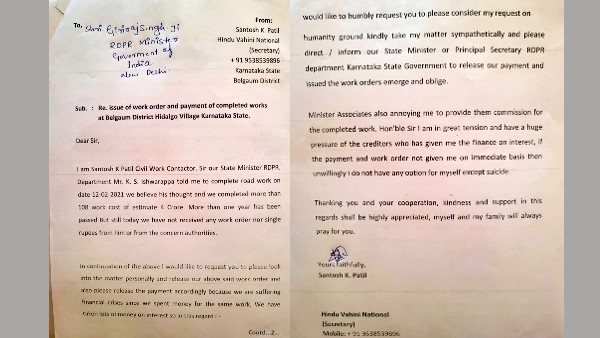 To, Shri Giriraj Singh Ji
RDPR Minister
Government of
India
New Delhi
From:
Santosh K. Patil
Hindu Vahini National
(Secretary)
+ 91 9538539896
Karnataka State
Belgaum District
Sub. : Re. issue of work order and payment of completed works
at Belgaum District Hidalgo Village Karnataka State.
Dear Sir,
I am Santosh K Patil Civil Work Contactor. Sir our State Minister RDPR.
Department Mr. K. S. Ishwarappa told me to complete road work on
date 12-02-2021 we believe his thought and we completed more than
108 work cost of estimate 4 Crore. More than one year has been
passed But still today we have not received any work order nor single
rupees from him or from the concern authorities.
In continuation of the above I would like to request you to please look
into the matter personally and release our above said work order and
also please release the payment accordingly because we are suffering
financial crises since we spent money for the same work. We have
taken lots of money on interest so in this regard I -
Contd...2..
would like to humbly request you to please consider my request on
humanity ground kindly take my matter sympathetically and please
direct / inform our State Minister or Principal Secretary RDPR
department Karnataka State Government to release our payment and
issued the work orders emerge and oblige.
Minister Associates also annoying me to provide them commission for
the completed work. Hon'ble Sir I am in great tension and have a huge
pressure of the creditors who has given me the finance on interest, if
the payment and work order not given me on immediate basis then
unwillingly I do not have any option for myself except suicide.
Thanking you and your cooperation, kindness and support in this
regards shall be highly appreciated, myself and my family will always
pray for you.
Yours faithfully,
Santosh K. Patil
Hindu Vahini National
(Secretary)
Mobile: + 91 9538539896